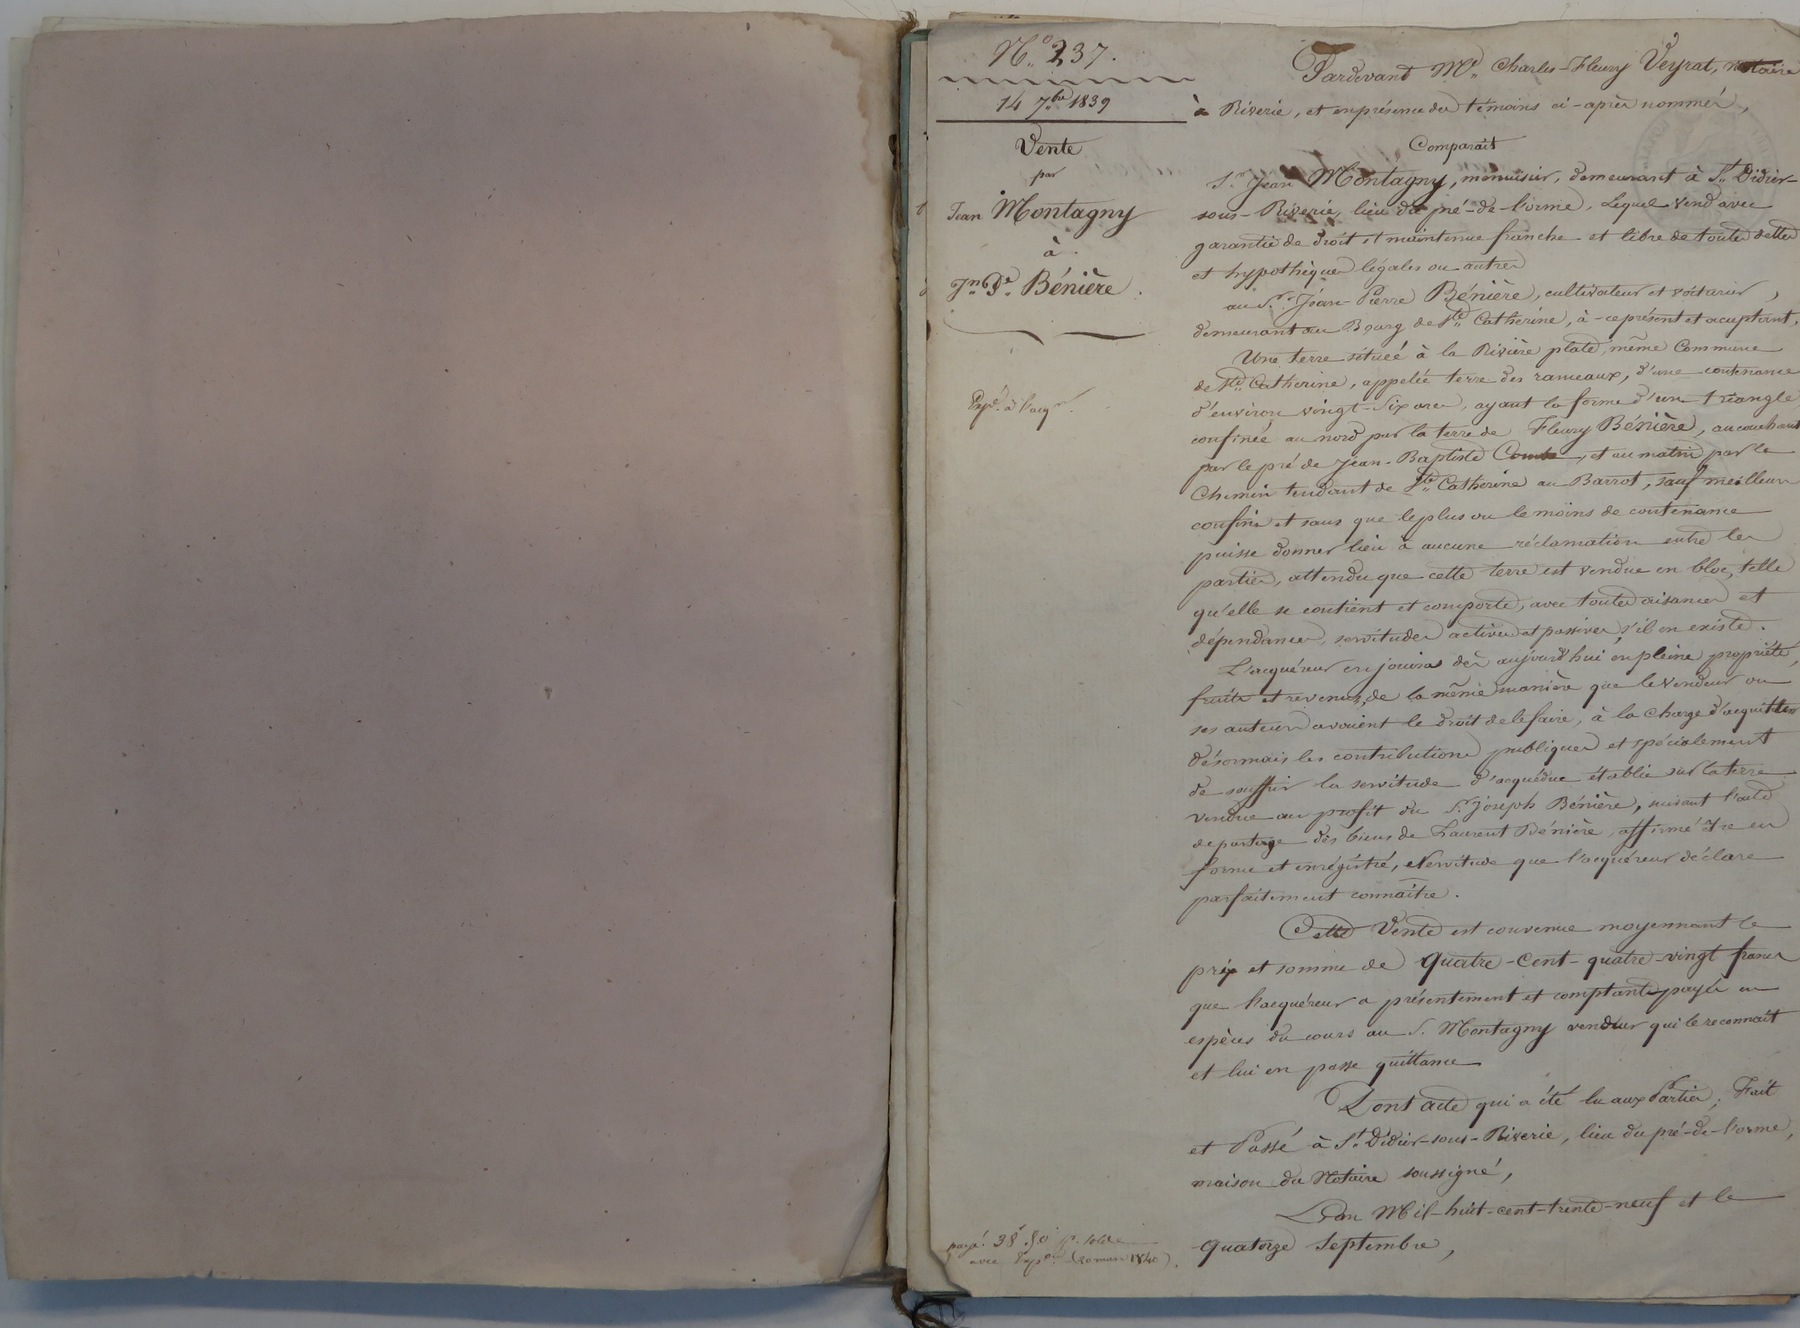 N.° 237.
14 7.bre 1839
Vente
par
Jean Montagny
à
Jn. Pe. Bénière.
Expé. à l'acqr.
payé. 38f. 80 pr. solde
avec Expon. (20 mars 1840).
Pardevant Me. Charles-Fleury Veyrat, notaire
à Riverie, et en présence des témoins ci-après nommés,
Comparait
Sr. Jean Montagny, menuisier, demeurant à St. Didier-
sous-Riverie, lieu du pré-de-l'orme. Lequel vend avec
garantie de droit et maintenue franche et libre de toutes dettes
et hypothèques légales ou autres
au Sr. Jean-Pierre Bénière, cultivateur et voiturier,
demeurant au Bourg de Ste. Catherine, à-ce présent et acceptant,
Une terre située à la Rivière plate, même Commune
de Ste. Catherine, appelée terre des rameaux, d'une contenance
d'environ vingt-six ares, ayant la forme d'un triangle,
confinée au nord par la terre de Fleury Bénière, au couchant
par le pré de Jean-Baptiste Comte, et au matin par le
Chemin tendant de Ste. Catherine au Barrot, sauf meilleurs
confins et sans que le plus ou le moins de contenance
puisse donner lieu à aucune réclamation entre les
parties, attendu que cette terre est vendue en bloc, telle
qu'elle se contient et comporte, avec toutes aisances et
dépendances, servitudes actives et passives s'il en existe.
L'acquéreur en jouira dès aujourd'hui en pleine propriété,
fruits et revenus, de la même manière que le vendeur ou
ses auteurs avaient le droit de le faire, à la charge d'acquitter
désormais les contributions publiques et spécialement
de souffrir la servitude d'acquéduc établie sur la terre
vendue au profit du Sr. Joseph Bénière, suivant l'acte
de partage des biens de Laurent Bénière, affirmé être en
forme et enrégistré, servitude que l'acquéreur déclare
parfaitement connaître.
Cette Vente est convenue moyennant le
prix et somme de quatre-cent-quatre-vingt francs
que l'acquéreur a présentement et comptant payés en
espèces du cours au S. Montagny vendeur qui le reconnait
et lui en passe quittance
Dont acte qui a été lu aux Parties; Fait
et Passé à St. Didier-sous-Riverie, lieu du pré-de-l'orme,
maison du Notaire soussigné,
L'an Mil-huit-cent-trente-neuf et le
quatorze Septembre,